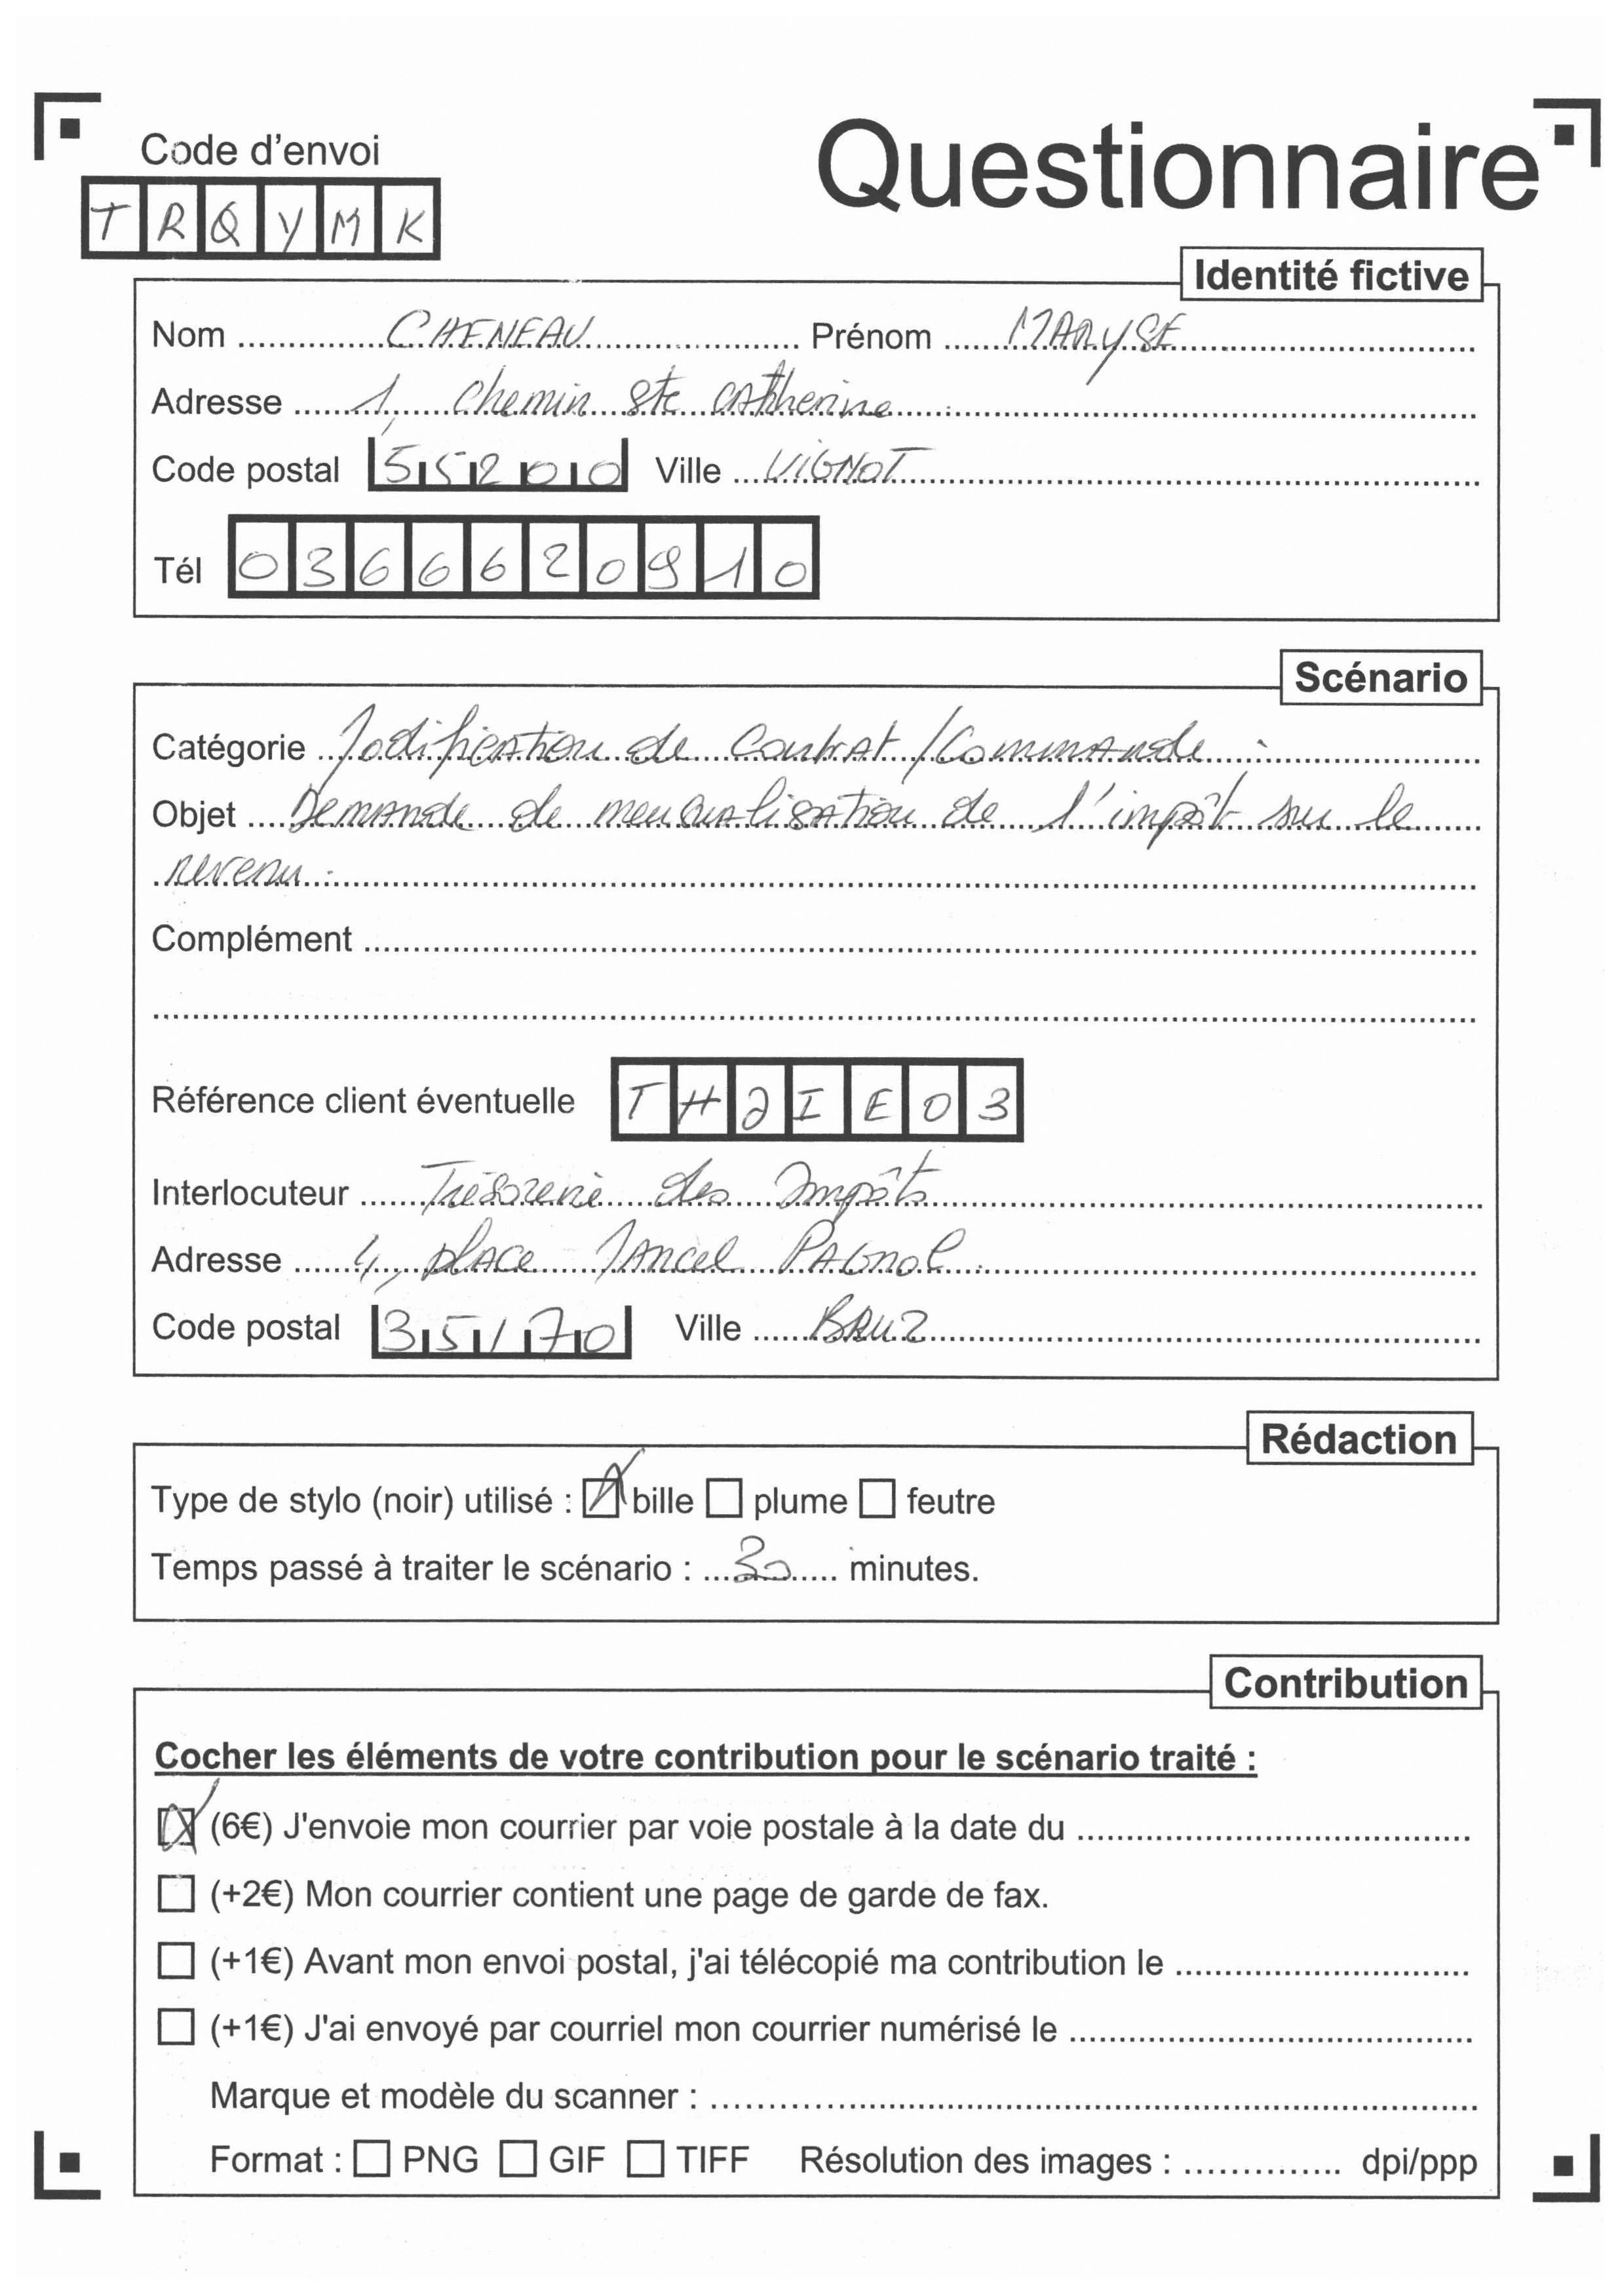 Code d'envoi
Questionnaire
TRQYMK
Identité fictive
Nom CHENEAU Prénom MARYSE
Adresse 1, chemin ste catherine
Code postal 55200 Ville VIGNOT
Tél 0366620910
Scénario
Catégorie Modification de Contrat / Commande :
Objet Demande de mensualisation de l'impôt sur le
revenu.
Complément
Référence client éventuelle THJIE03
Interlocuteur Trésorerie des Impôts
Adresse 4, place Marcel PAGnol
Code postal 35170 Ville BRUZ
Rédaction
Type de stylo (noir) utilisé : bille plume feutre
Temps passé à traiter le scénario : 30 minutes.
Contribution
Cocher les éléments de votre contribution pour le scénario traité :
(6€) J'envoie mon courrier par voie postale à la date du
(+2€) Mon courrier contient une page de garde de fax.
(+1€) Avant mon envoi postal, j'ai télécopié ma contribution le
(+1€) J'ai envoyé par courriel mon courrier numérisé le
Marque et modèle du scanner :
Format : PNG GIF TIFF Résolution des images : dpi/ppp